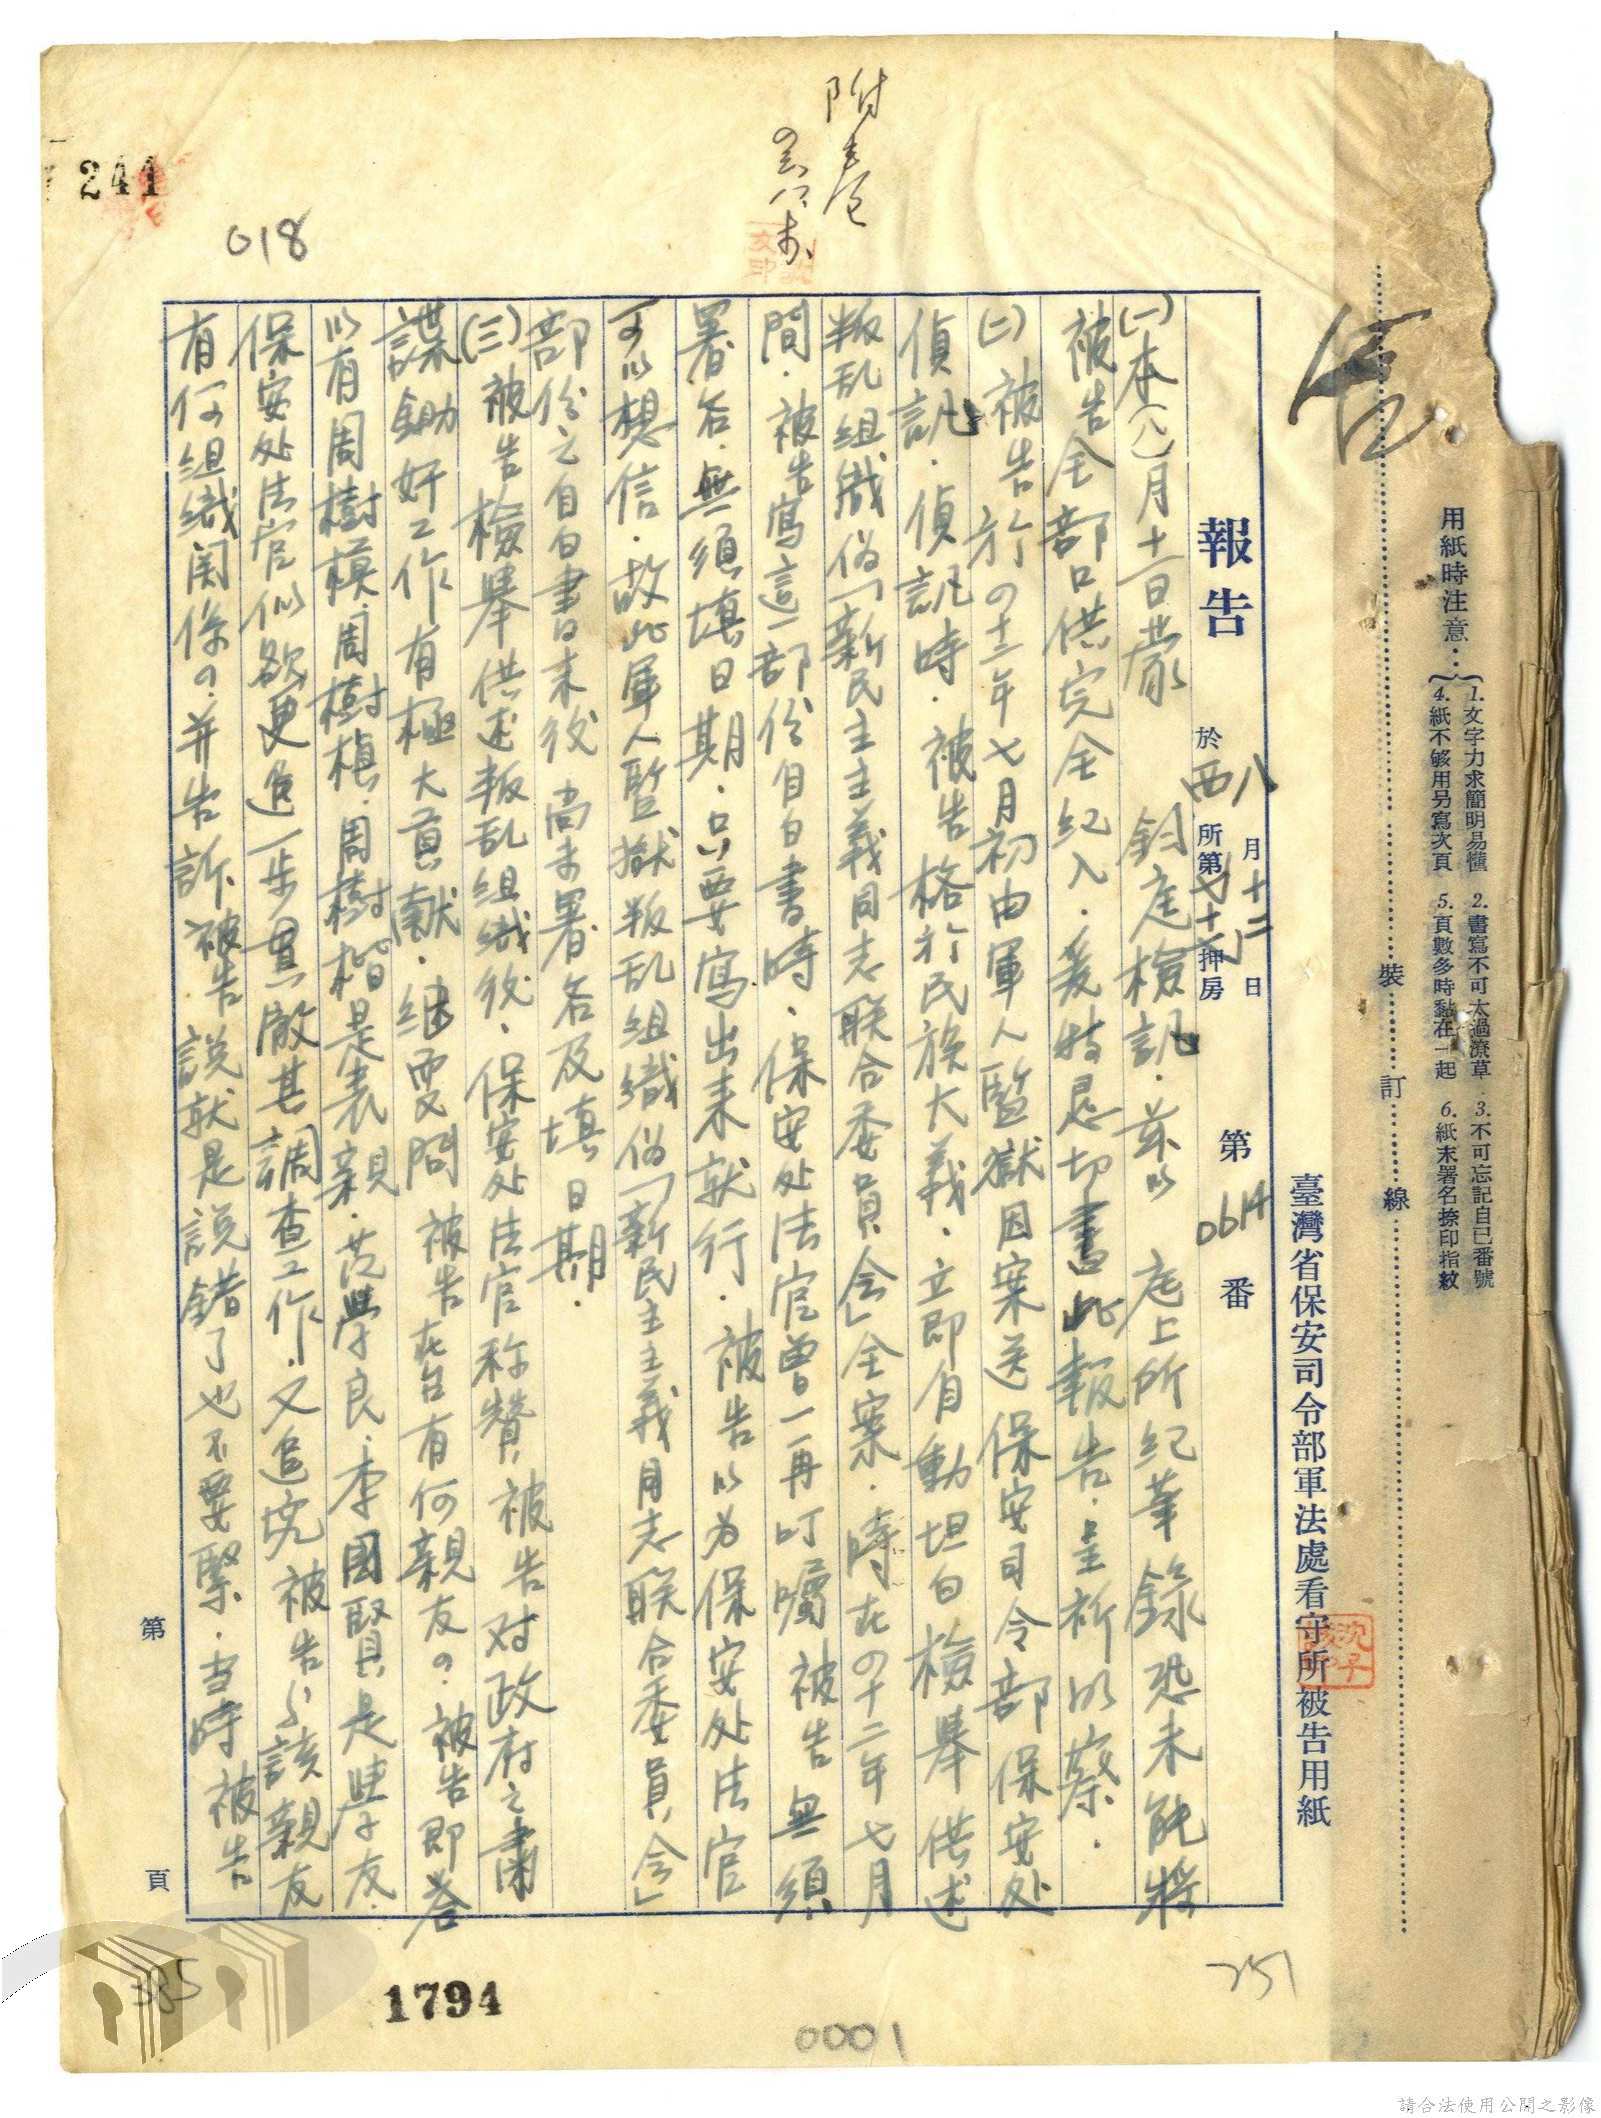 用紙時注意：
1. 文字力求簡明易懂 2. 書寫不可太過潦草 3. 不可忘記自已番號
4. 紙不够用另寫次頁 5. 頁數多時黏在一起 6. 紙末署名捺印指紋
裝 訂 線
臺灣省保安司令部軍法處看守所被告用紙
報告
八月十二日
於西所第 押房
第0614番
(一)本(八)月十一日蒙 鈞庭檢訊．茲以 庭上所紀筆錄恐未能將
被告全部口供完全紀入．爰特急切書此報告．呈祈明察．
(二)被告於四十二年七月初由軍人監獄因案送保安司令部保安处
偵訊．偵訊時．被告格於民族大義．立即自動坦白檢舉供述
叛乱組織偽「新民主主義同志联合委員会」全案．時在四十二年七月
間．被告寫這一部份自白書時．保安处法官曾一再叮囑被告無須
署名．無須填日期．只要寫出来就行．被告以为保安处法官
可以想信．故此軍人監獄叛乱組織偽「新民主主義同志联合委員会」
部份之自白書末後尚未署名及填日期．
(三)被告檢舉供述叛乱組織後．保安处法官称贊被告对政府之肅
諜鋤奸工作有極大貢献．継要問被告在台有何親友？被告即答
以有周樹模．周樹楨．周樹楷是表親．范學良．李國賢是學友．
保安处法官似欲更進一步異厰其調查工作．又追究被告与該親友
有何組織関係？并告訴被告說就是說錯了也不要緊．当時被告
第 頁
附卷
241
018
385
1794
0001
251
請合法使用公開之影像